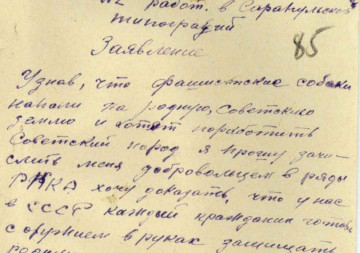 работ. в Сарапульской
типографии
85
Заявление
Узнав, что фашистские собаки
напали на родную, Советскую
землю и хотят поработить
Советский народ я прошу зачи-
слить меня добровольцем в ряды
РККА хочу доказать, что у нас
в СССР каждый гражданин готов
с оружием в руках защищать